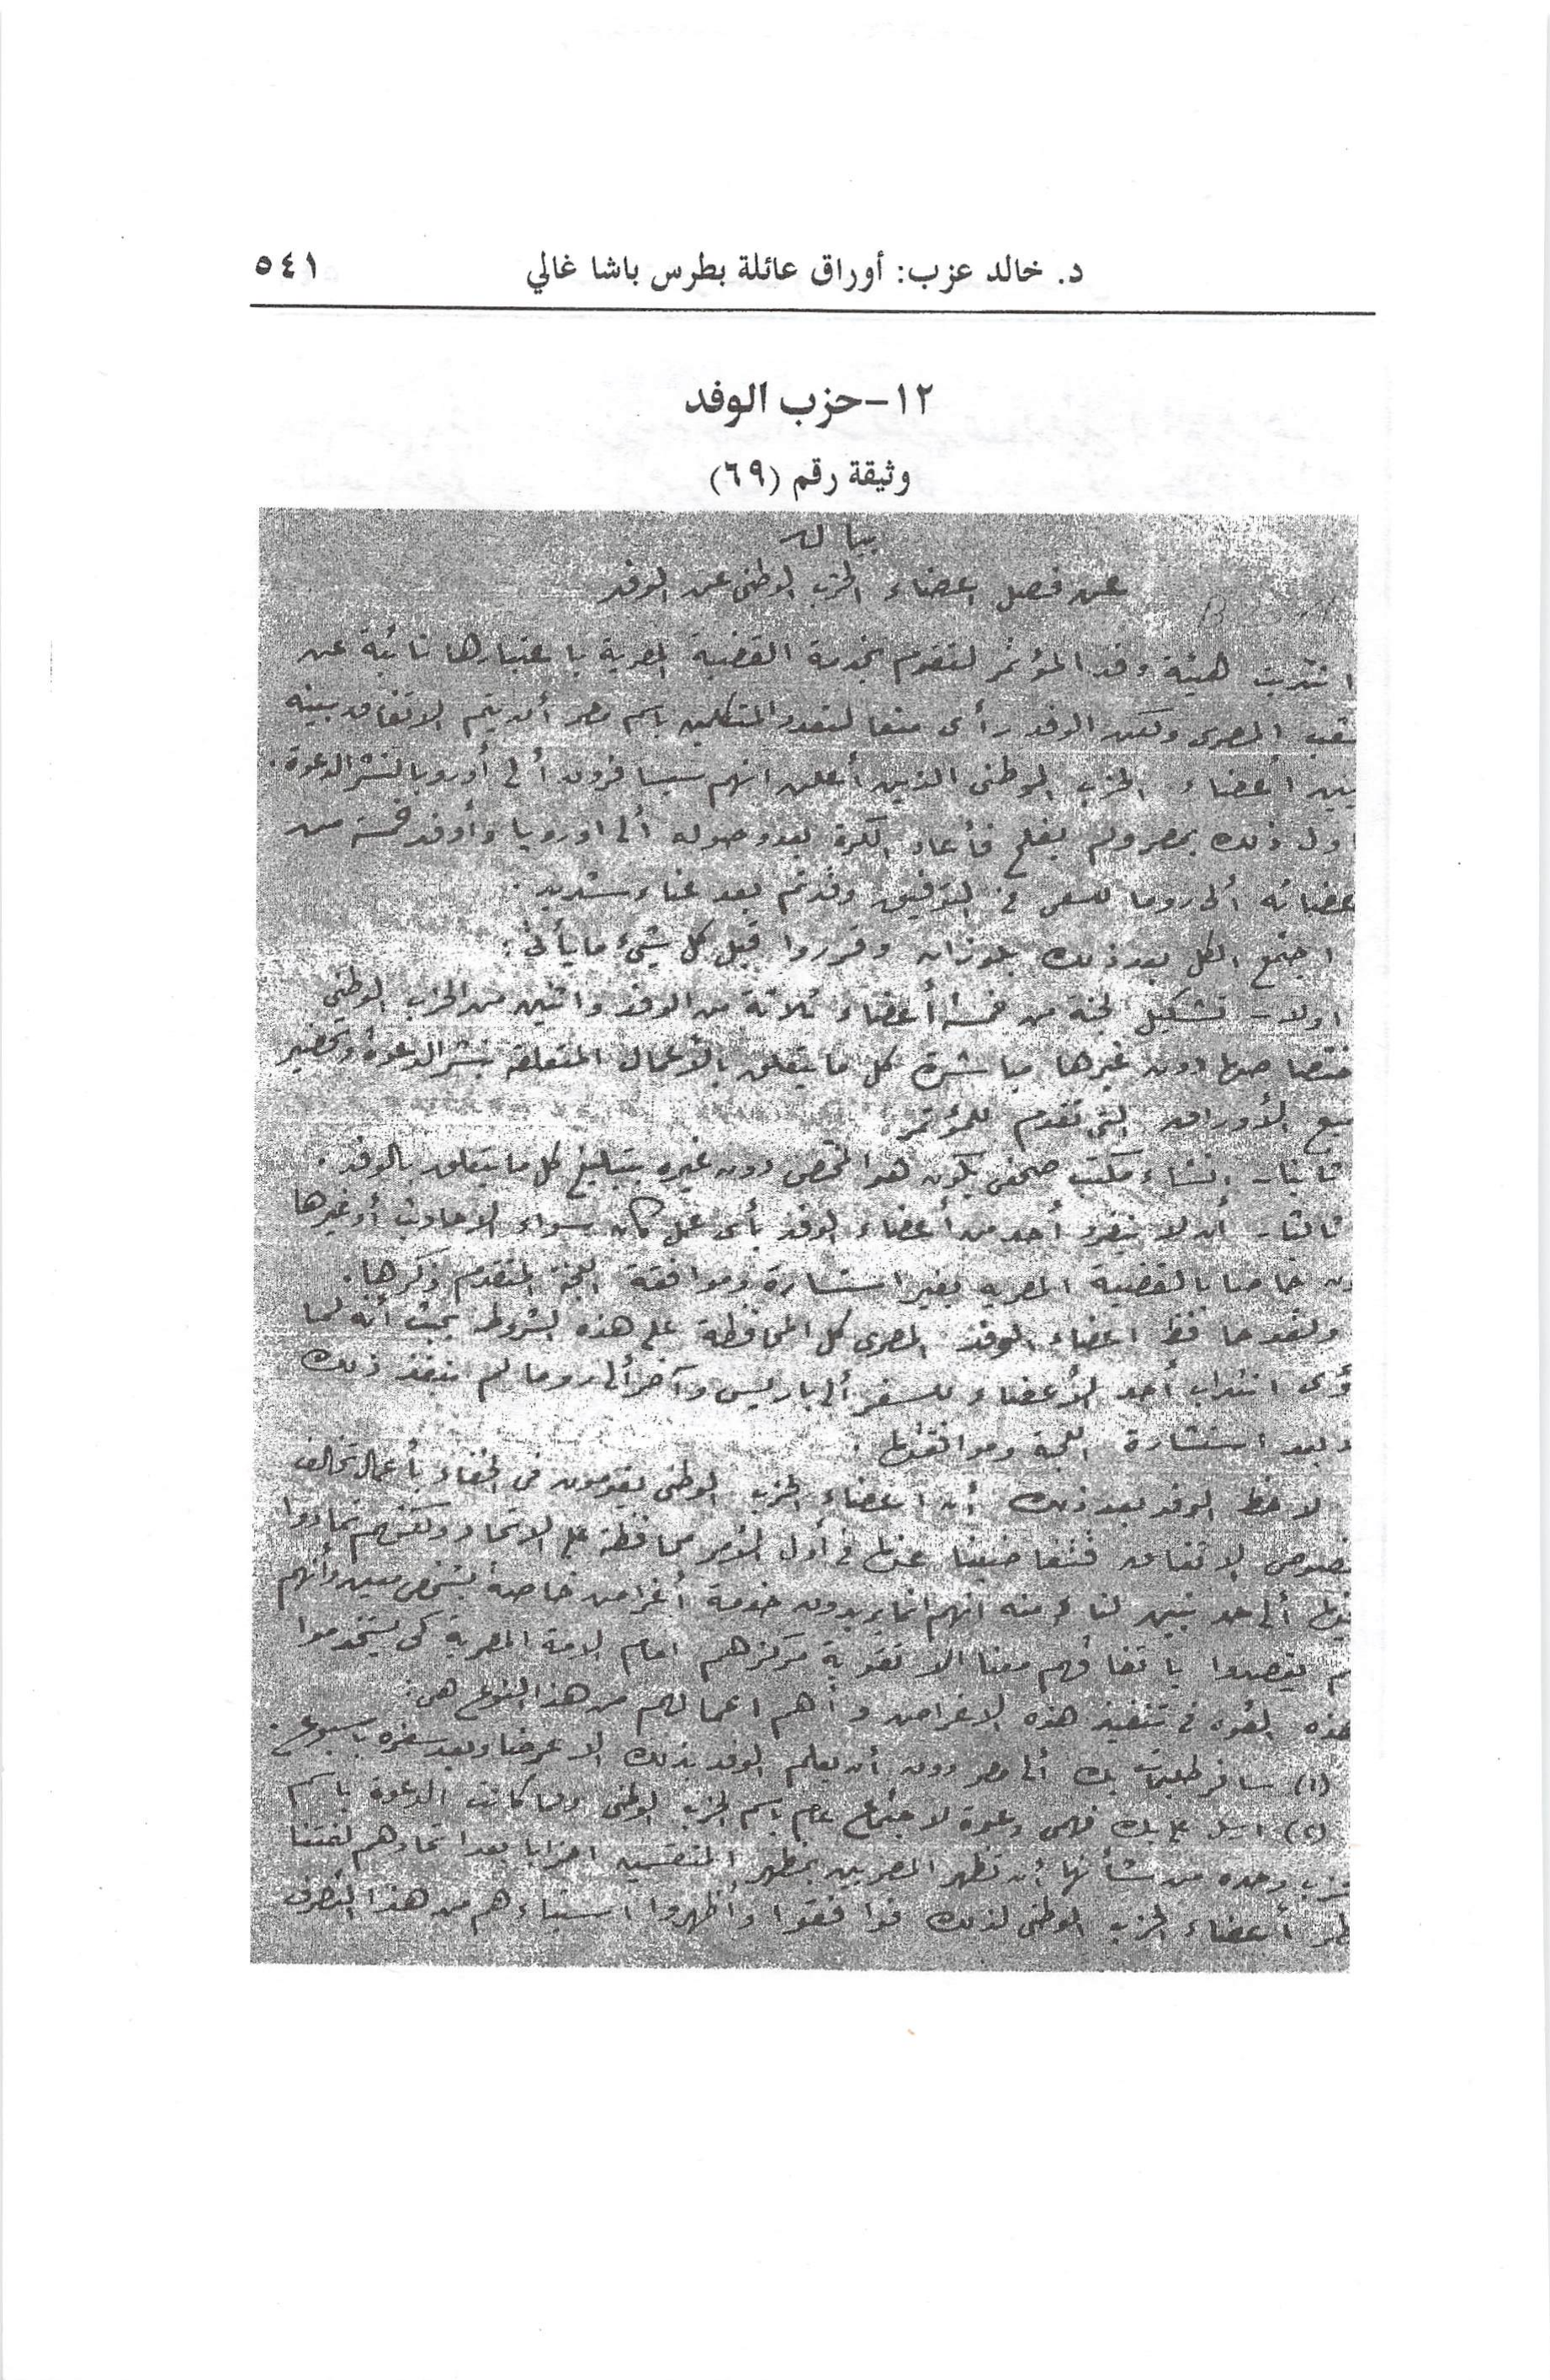 د. خالد عزب: أوراق عائلة بطرس باشا غالي ٥٤١
١٢-حزب الوفد
وثيقة رقم (٦٩)
بيان
عن فصل اعضاء الحزب الوطنى عن الوفد
انتدبت هيئة وفد المؤتمر لتقوم بخدمة القضية المصرية باعتبارها نائبة عن
المصرى ولكن الوفد رأى منعا لتعدد المتكلمين باسم مصر أن يتم الاتفاق بينه
بين أعضاء الحزب الوطنى الذين أعلن انهم سيسافرون ألى أوروبا لنشر الدعوة.
اول ذلك بمصر ولم يفلح فأعاد الكرة بعد وصوله ألى اوروبا وأوفد خمسة من
عضائه ألى روما للسعى فى التوفيق وقد تم بعد عناء شديد.
اجتمع الكل بعد ذلك بلوزان وقرروا قبل كل شيئ ما يأتى:
اولا- تشكيل لجنة من خمسة أعضاء ثلاثة من الوفد واثنين من الحزب الوطنى
ختصاصها دون غيرها مباشرة كل ما يتعلق بالأعمال المتعلقة بنشر الدعوة وتحضير
ميع الأوراق التى تقدم للمؤتمر
ثانيا- انشاء مكتب صحفى يكون هو المختص دون غيره بتبليغ كل ما يتعلق بالوفد.
ثالثا- أن لا ينفرد أحد من أعضاء الوفد بأى عمل كان سواء الاحاديث أو غيرها
ن خاصا بالقضية المصريه بغير استشارة وموافقة اللجنة المتقدم ذكرها.
ولقد حافظ اعضاء الوفد المصرى كل المحافظة على هذه الشروط بحيث أنه لما
ؤى انتداب أحد الأعضاء للسفر ألى باريس وآخر ألى روما لم ينفذ ذلك
بعد استشارة اللجنة وموافقتها.
لاحظ الوفد بعد ذلك أن اعضاء الحزب الوطنى يقومون فى الخفاء بأعمال تخالف
نصوص الاتفاق فتغاضينا عنها فى أول الأمر محافظة على الاتحاد ولكنهم تمادوا
فيها ألى حد تبين لنا منه انهم انما يريدون خدمة أغراض خاصة بشخص معين وأنهم
م يقصدوا باتفاقهم معنا الا تقوية مركزهم امام الامة المصرية كى يستخدموا
هذه القوه فى تنفيذ هذه الاغراض وأهم اعمالهم من هذا النوع هى:
(١) سافر بك ألى مصر دون أن يعلم الوفد بذلك الا عرضا وبعد سفره باسبوع.
(٢) ارسل على بك فهمى دعوة لاجتماع عام باسم الحزب الوطنى ولما كانت الدعوة باسم
حزب وحده من شأنها أن تظهر المصريين بمظهر المنقسمين احزابا بعد اتحادهم لفتنا
ظر أعضاء الحزب الوطنى لذلك فوافقوا وأظهروا استياءهم من هذا التصرف